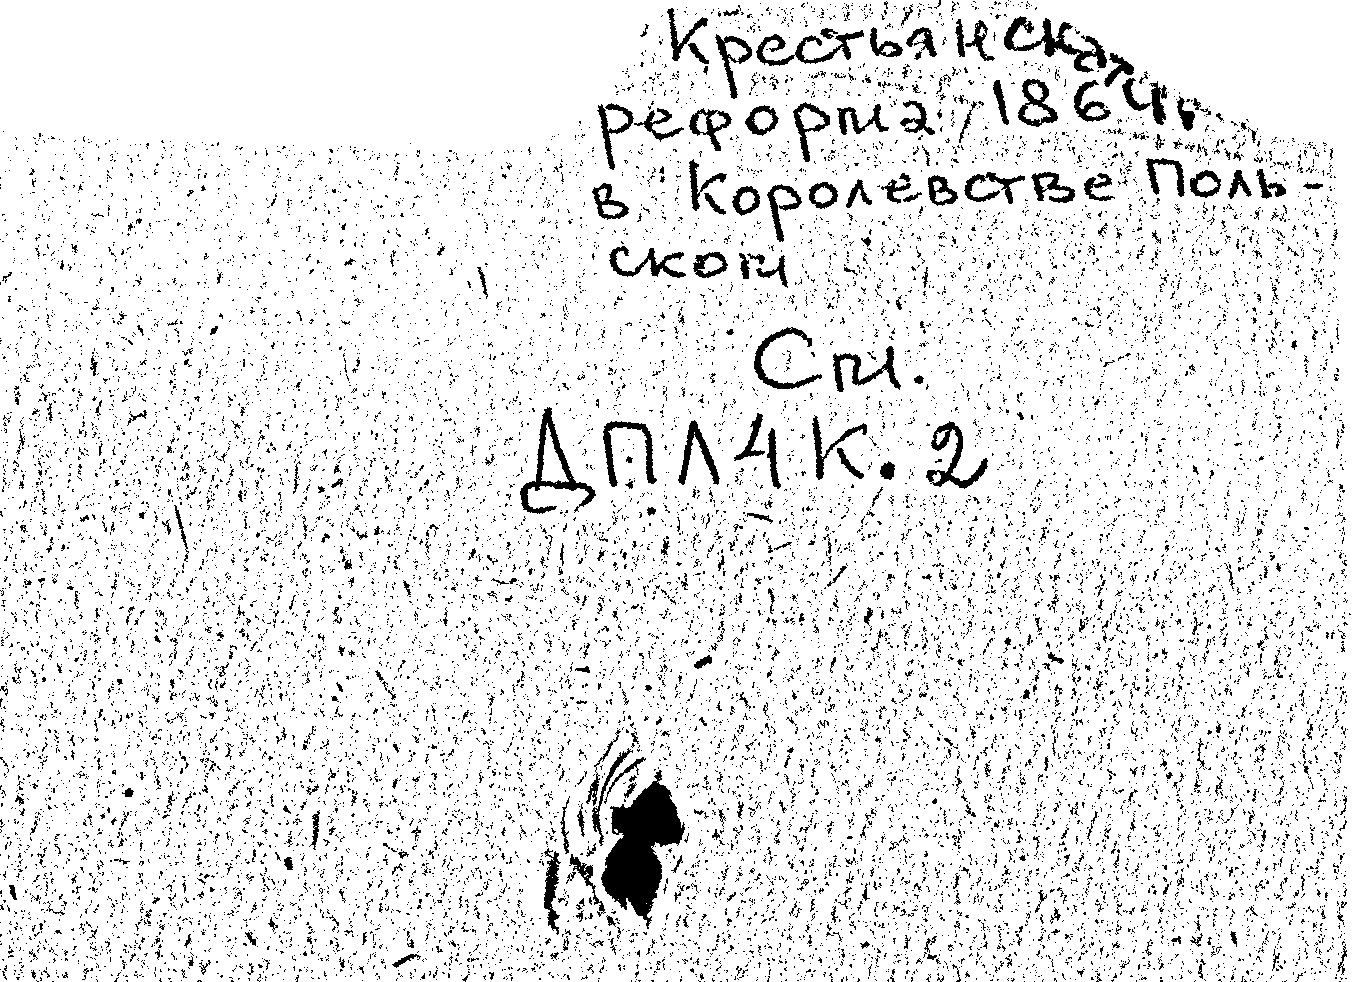 Крестьянская
реформа 1864г.
в Королевстве Поль-
ском
См.
ДПЛ4К.2